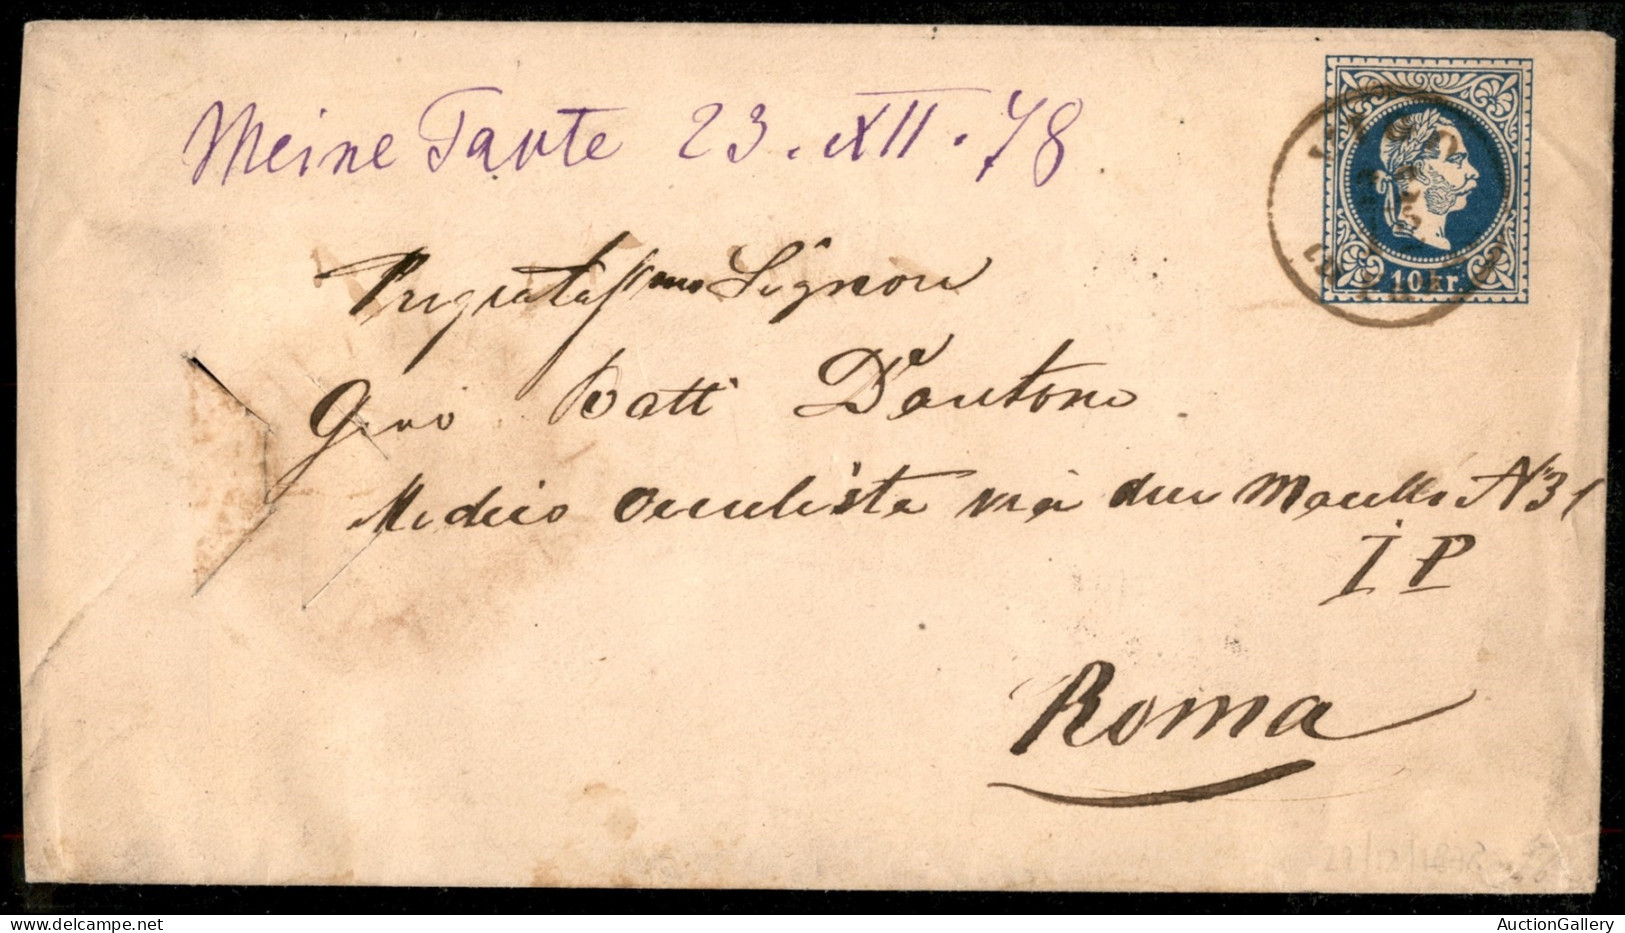 Meine Tante 23. XII. 78
10 kr.
VIGO
Pregiatassmo Signore
Giro Batt D'Antone
Medico Occulista via due Macelli N 31
I P
Roma
AuctionGallery